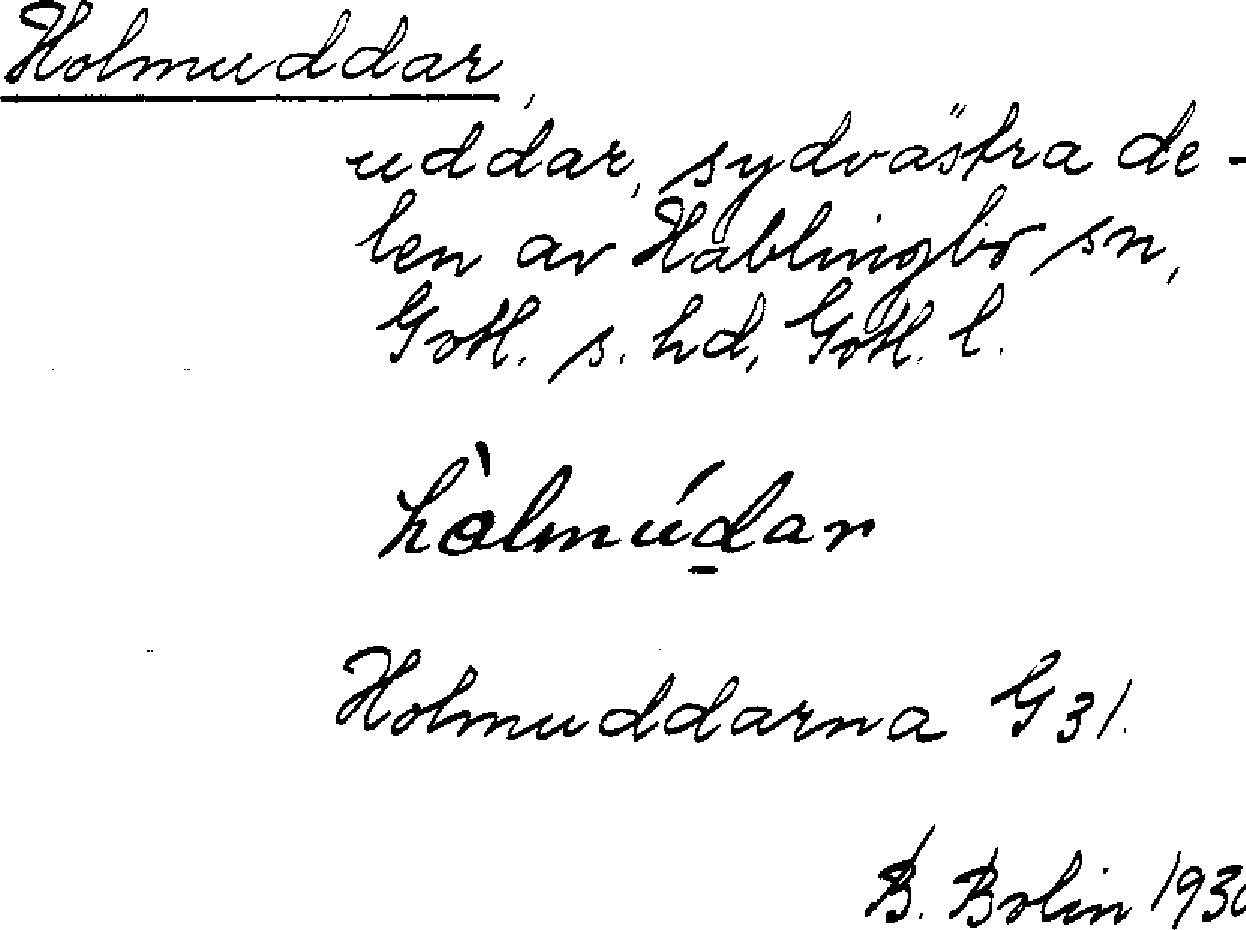 Holmuddar,
uddar, sydvästra de-
len av Hablingbo sn,
Gotl. s. hd, Gotl. l.
hòlmúdar
Holmuddarna G 31.
B. Bolin 1930